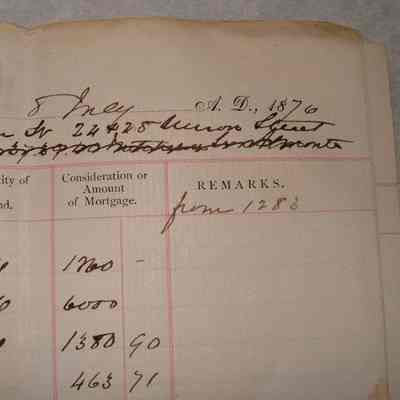 8 July A. D., 1876
24 & 25 Street
tity of
nd,
Consideration or
Amount
of Mortgage.
REMARKS.
from 1283
1260 -
6000
1380 90
463 71